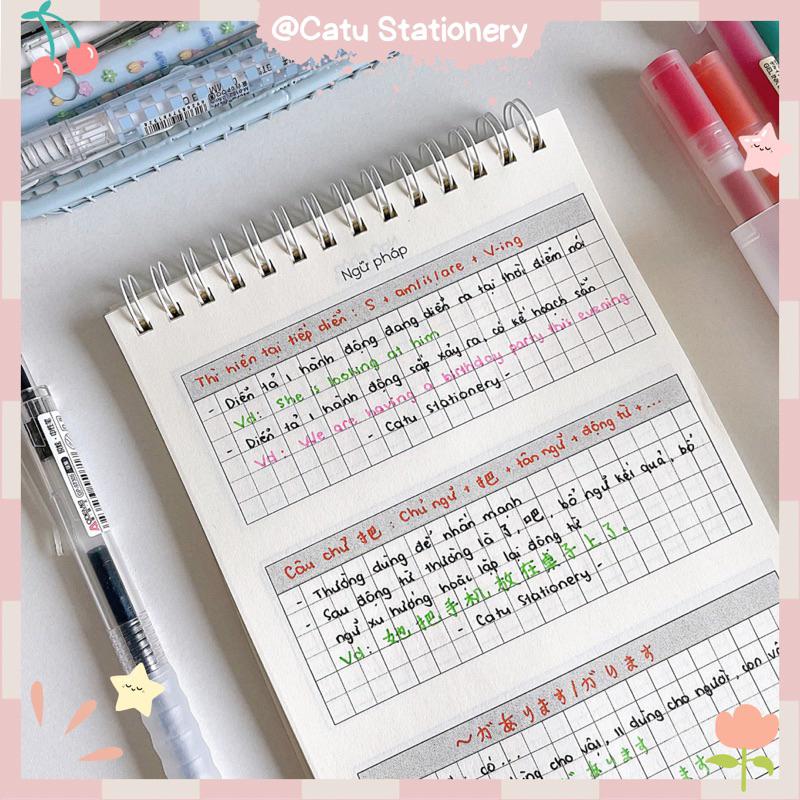 @Catu Stationery
Ngữ pháp
Thì hiện tại tiếp diễn : S + am/is/are + V-ing
- Diễn tả 1 hành động đang diễn ra tại thời điểm nói
Vd: She is looking at him
- Diễn tả 1 hành động sắp xảy ra, có kế hoạch sẵn
Vd: We are having a birthday party this evening
- Catu Stationery -
Câu chữ 把 : Chủ ngữ + 把 + tân ngữ + động từ + ...
- Thường dùng để nhấn mạnh
- Sau động từ thường là 了, 吧, bổ ngữ kết quả, bổ
ngữ xu hướng hoặc lặp lại động từ
Vd: 她把手机放在桌子上了。
- Catu Stationery -
~があります/がります
có ...
dùng cho vật, II dùng cho người, con vật
があります
ます